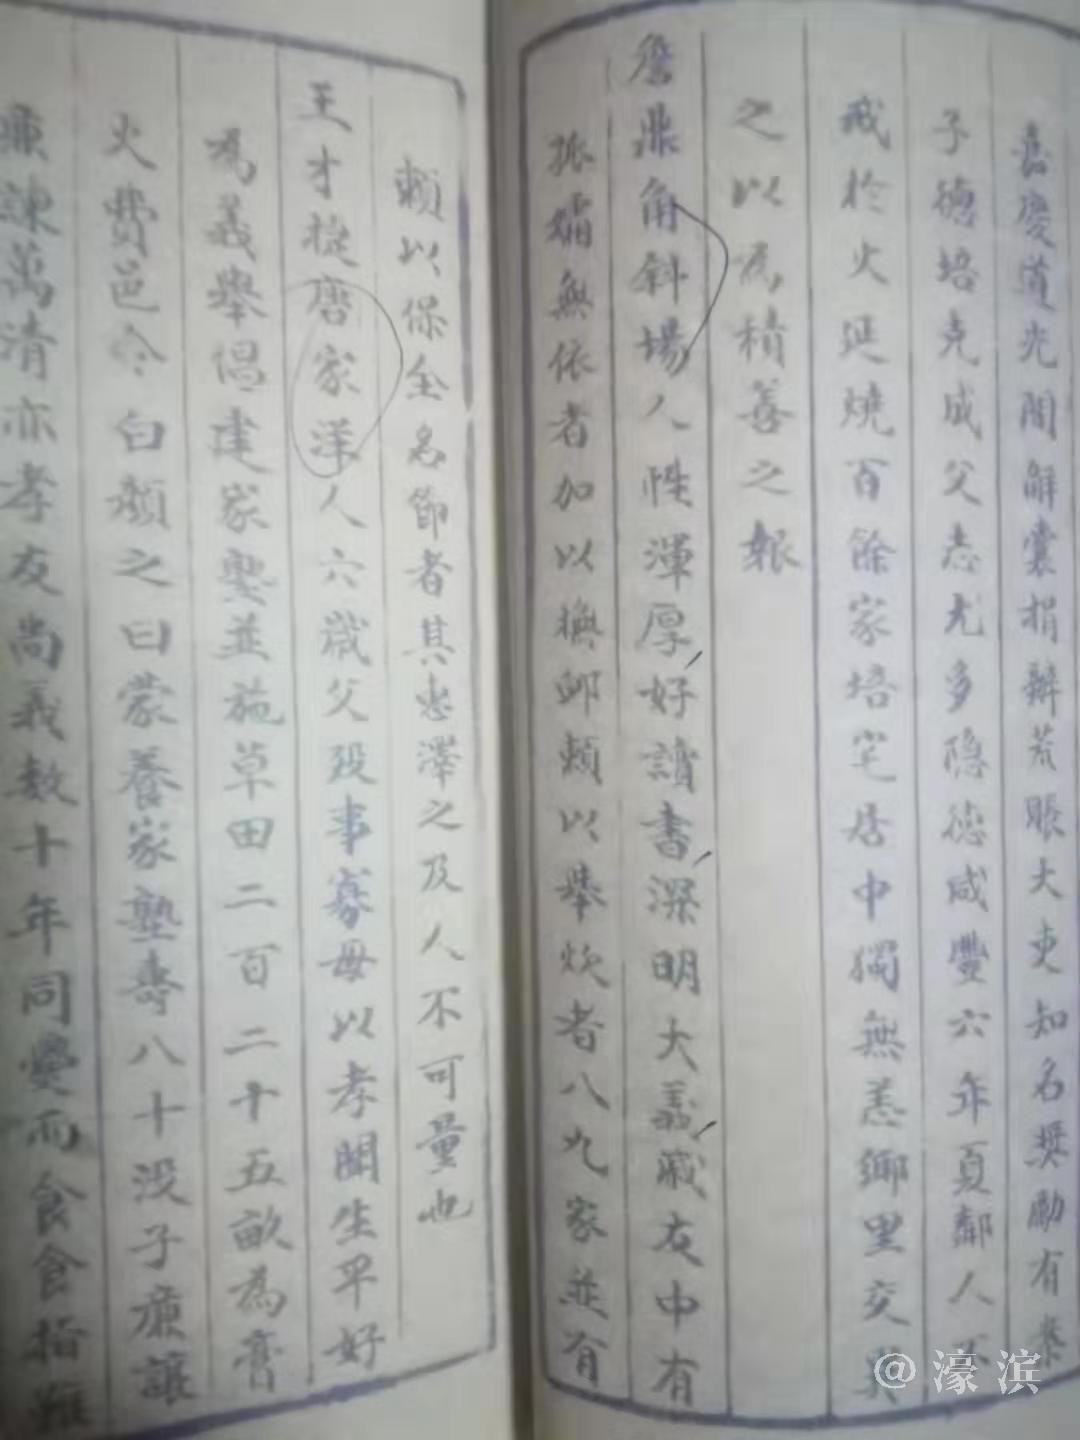 嘉慶道光間解囊捐辦荒賬大吏知名奬勵有案
子德培克成父志尤多隐德咸豐六年夏鄰人不
戒於火延燒百餘家培宅居中獨無恙鄉里交異
之以為積善之報
詹鼎角斜場人性渾厚好讀書深明大義戚友中有
孤孀無依者加以撫卹賴以舉炊者八九家並有
賴以保全名節者其惠澤之及人不可量也
王才授唐家洋人六歲父歿事寡母以孝聞生平好
為義舉倡建家塾並施草田二百二十五畝為膏
火費邑令白顏之曰蒙養家塾壽八十没子廉讓
廉諫萬清亦孝友尚義数十年同爨而食食指雖
@濠滨